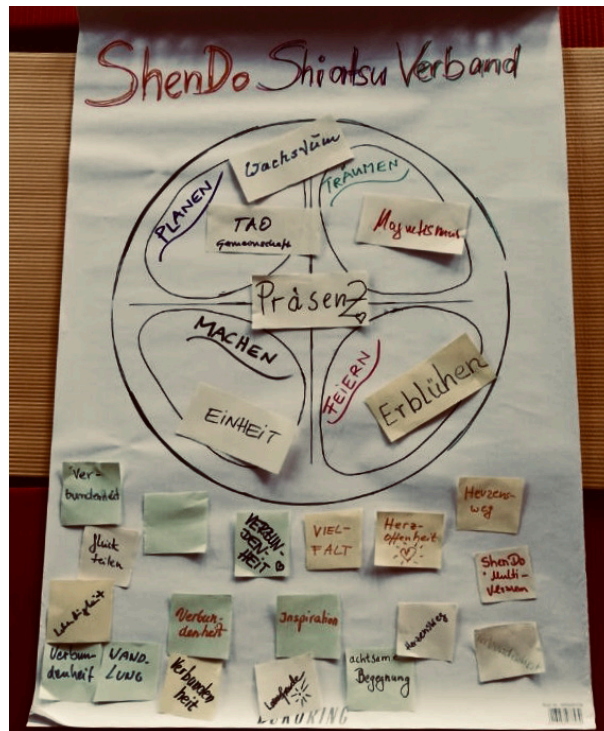 ShenDo Shiatsu Verband
Wachstum
PLANEN
TRÄUMEN
TAO
Gemeinschaft
Magnetismus
Präsenz
MACHEN
FEIERN
EINHEIT
Erblühen
Ver-
bundenheit
Glück
teilen
VERBUN-
DEN-
HEIT
VIEL-
FALT
Herz-
offenheit
Herzens-
weg
ShenDo
Multi-
Lebendigkeit
Verbun-
denheit
Inspiration
Herzensweg
Verbun-
denheit
WAND-
LUNG
Verbunden
heit
achtsame
Begegnung
EUROKING